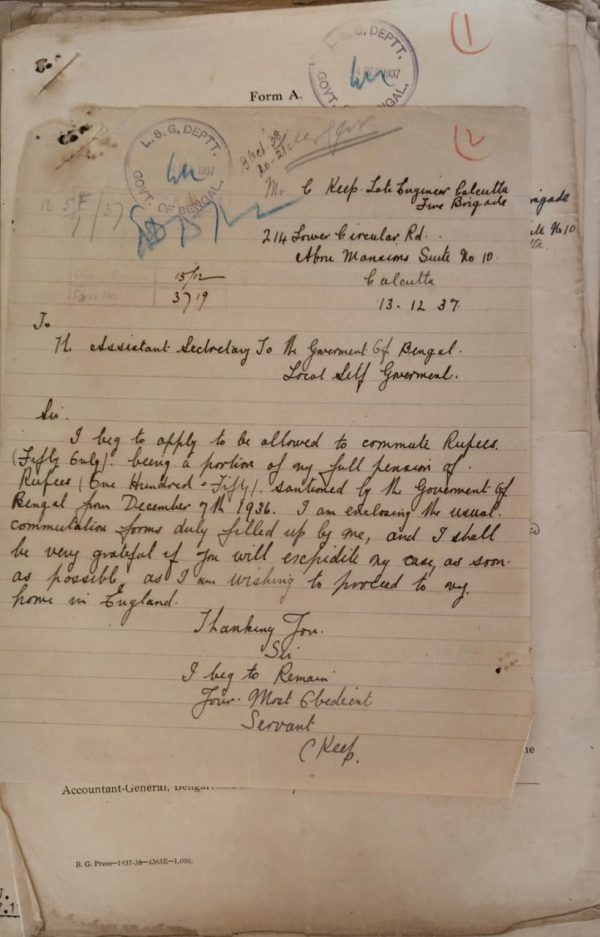 (1)
L. S. G. DEPTT.
1937
GOVT. OF BENGAL.
Form A.
(2)
L. S. G. DEPTT.
1937
GOVT. OF BENGAL.
Mr C Keep. Late Engineer Calcutta
Fire Brigade
rigade
214 Lower Circular Rd.
No 10
Abru Mansions Suite No 10.
Calcutta
15/12
3719
13. 12 37.
To
Th Assistant Sectretary To the Goverment Of Bengal.
Local Self Goverment.
Sir.
I beg to apply to be allowed to commute Rupees.
(Fifty Only). being a portion of my full pension of.
Rupees (One Hundred & Fifty). santioned by the Goverment Of
Bengal from December 7th 1936. I am enclosing the usual.
commutation forms duly filled up by me, and I shall
be very grateful if you will escpidite my case, as soon.
as possible, as I am wishing to proceed to my.
home in England.
Thanking You.
Sir
I beg to Remain
Your. Most Obedient
Servant
C Keep.
Accountant-General, Bengal
B. G. Press—1937-38—4365E—1,000.